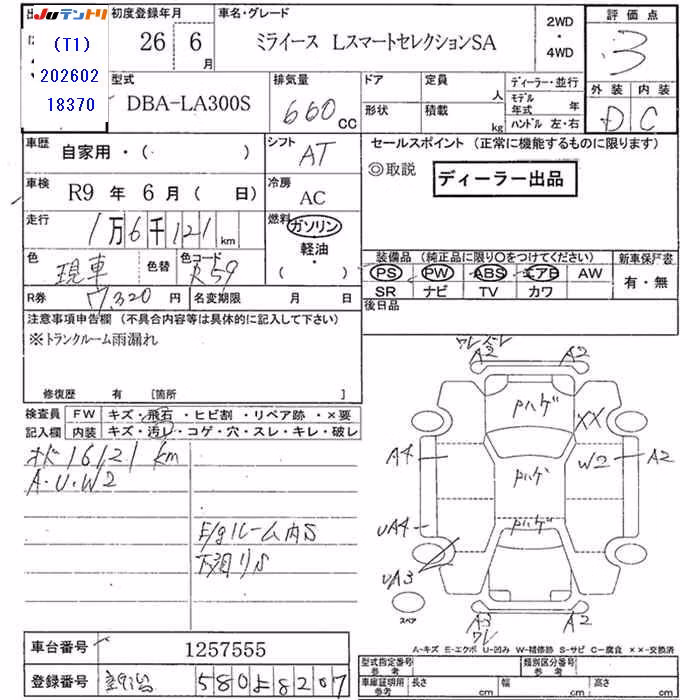 JUテントリ
(T1)
202602
18370
初度登録年月
26年 6月
車名・グレード
ミライース LスマートセレクションSA
2WD
・
4WD
評価点
3
外装 内装
D C
型式
DBA-LA300S
排気量
660 cc
ドア
定員 人
形状
積載 kg
ディーラー・並行
モデル年式 年
ハンドル 左・右
車歴
自家用・( )
シフト
AT
車検
R9 年 6 月( 日)
冷房
AC
走行
1万6千121km
燃料
ガソリン
軽油
・
( )
色
現車
色替
色コード
R59
R券
7,320円
名変期限 月 日
セールスポイント (正常に機能するものに限ります)
◎取説
ディーラー出品
装備品 (純正品に限り〇をつけてください)
PS PW ABS エアB AW
SR ナビ TV カワ
新車保証書
有・無
後日品
注意事項申告欄 (不具合内容等は具体的に記入して下さい)
※トランクルーム雨漏れ
修復歴 有 [箇所 ]
検査員
記入欄
FW キズ・飛石・ヒビ割・リペア跡・×要
内装 キズ・汚レ・コゲ・穴・スレ・キレ・破レ
オド16121km
A・U・W2
E/gルーム内S
下廻りS
ワレ ズレ
A2 A2
Pハゲ
XX
A4
Pハゲ
W2
A2
UA4
Pハゲ
UA3
スペア
A2
ワレ
A2
A-キズ E-エクボ U-凹み W-補修跡 S-サビ C-腐食 ××-交換済
車台番号
1257555
登録番号
580 8207
型式指定番号
参考
類別区分番号
参考
車庫証明用
参考
長さ cm
幅 cm
高さ cm